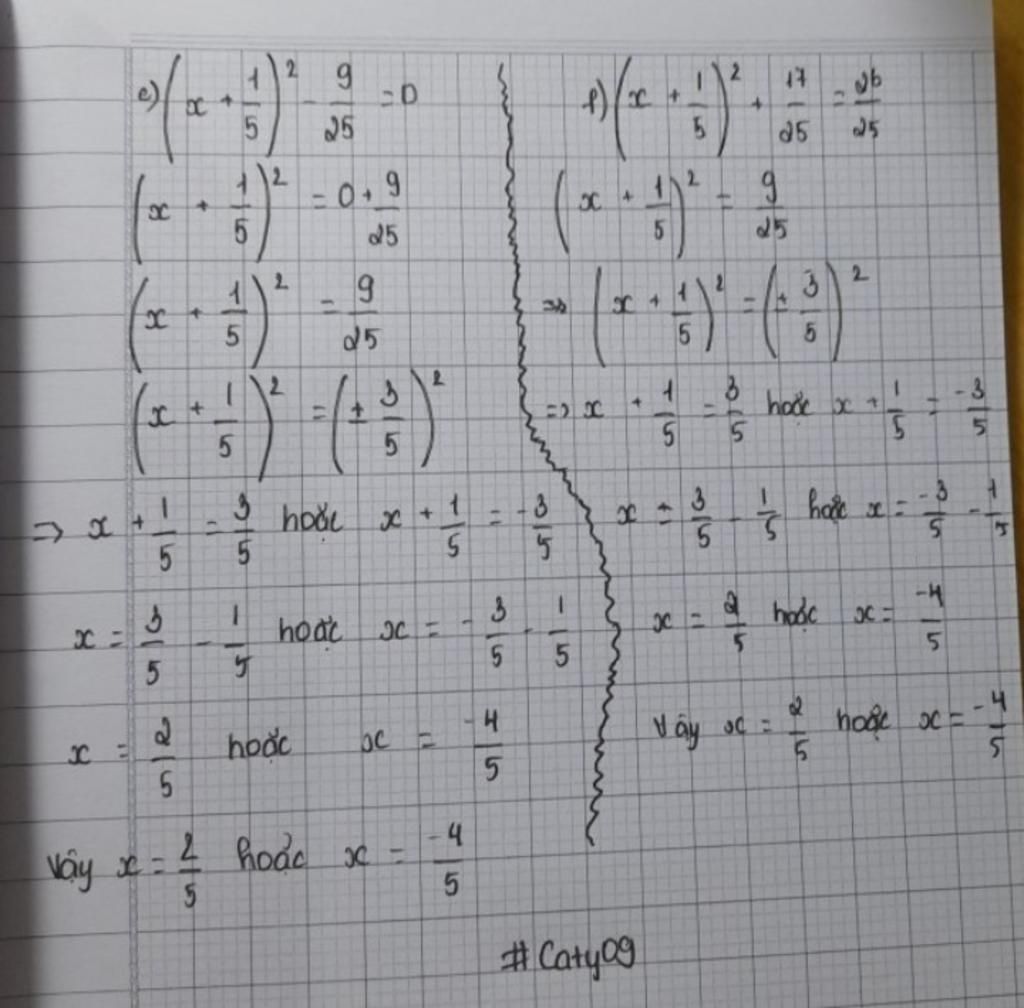 e) (x + 1/5)² - 9/25 = 0
(x + 1/5)² = 0 + 9/25
(x + 1/5)² = 9/25
(x + 1/5)² = (± 3/5)²
=> x + 1/5 = 3/5 hoặc x + 1/5 = -3/5
x = 3/5 - 1/5 hoặc x = -3/5 - 1/5
x = 2/5 hoặc x = -4/5
Vậy x = 2/5 hoặc x = -4/5
f) (x + 1/5)² + 17/25 = 26/25
(x + 1/5)² = 9/25
=> (x + 1/5)² = (± 3/5)²
=> x + 1/5 = 3/5 hoặc x + 1/5 = -3/5
x = 3/5 - 1/5 hoặc x = -3/5 - 1/5
x = 2/5 hoặc x = -4/5
Vậy x = 2/5 hoặc x = -4/5
#Caty09